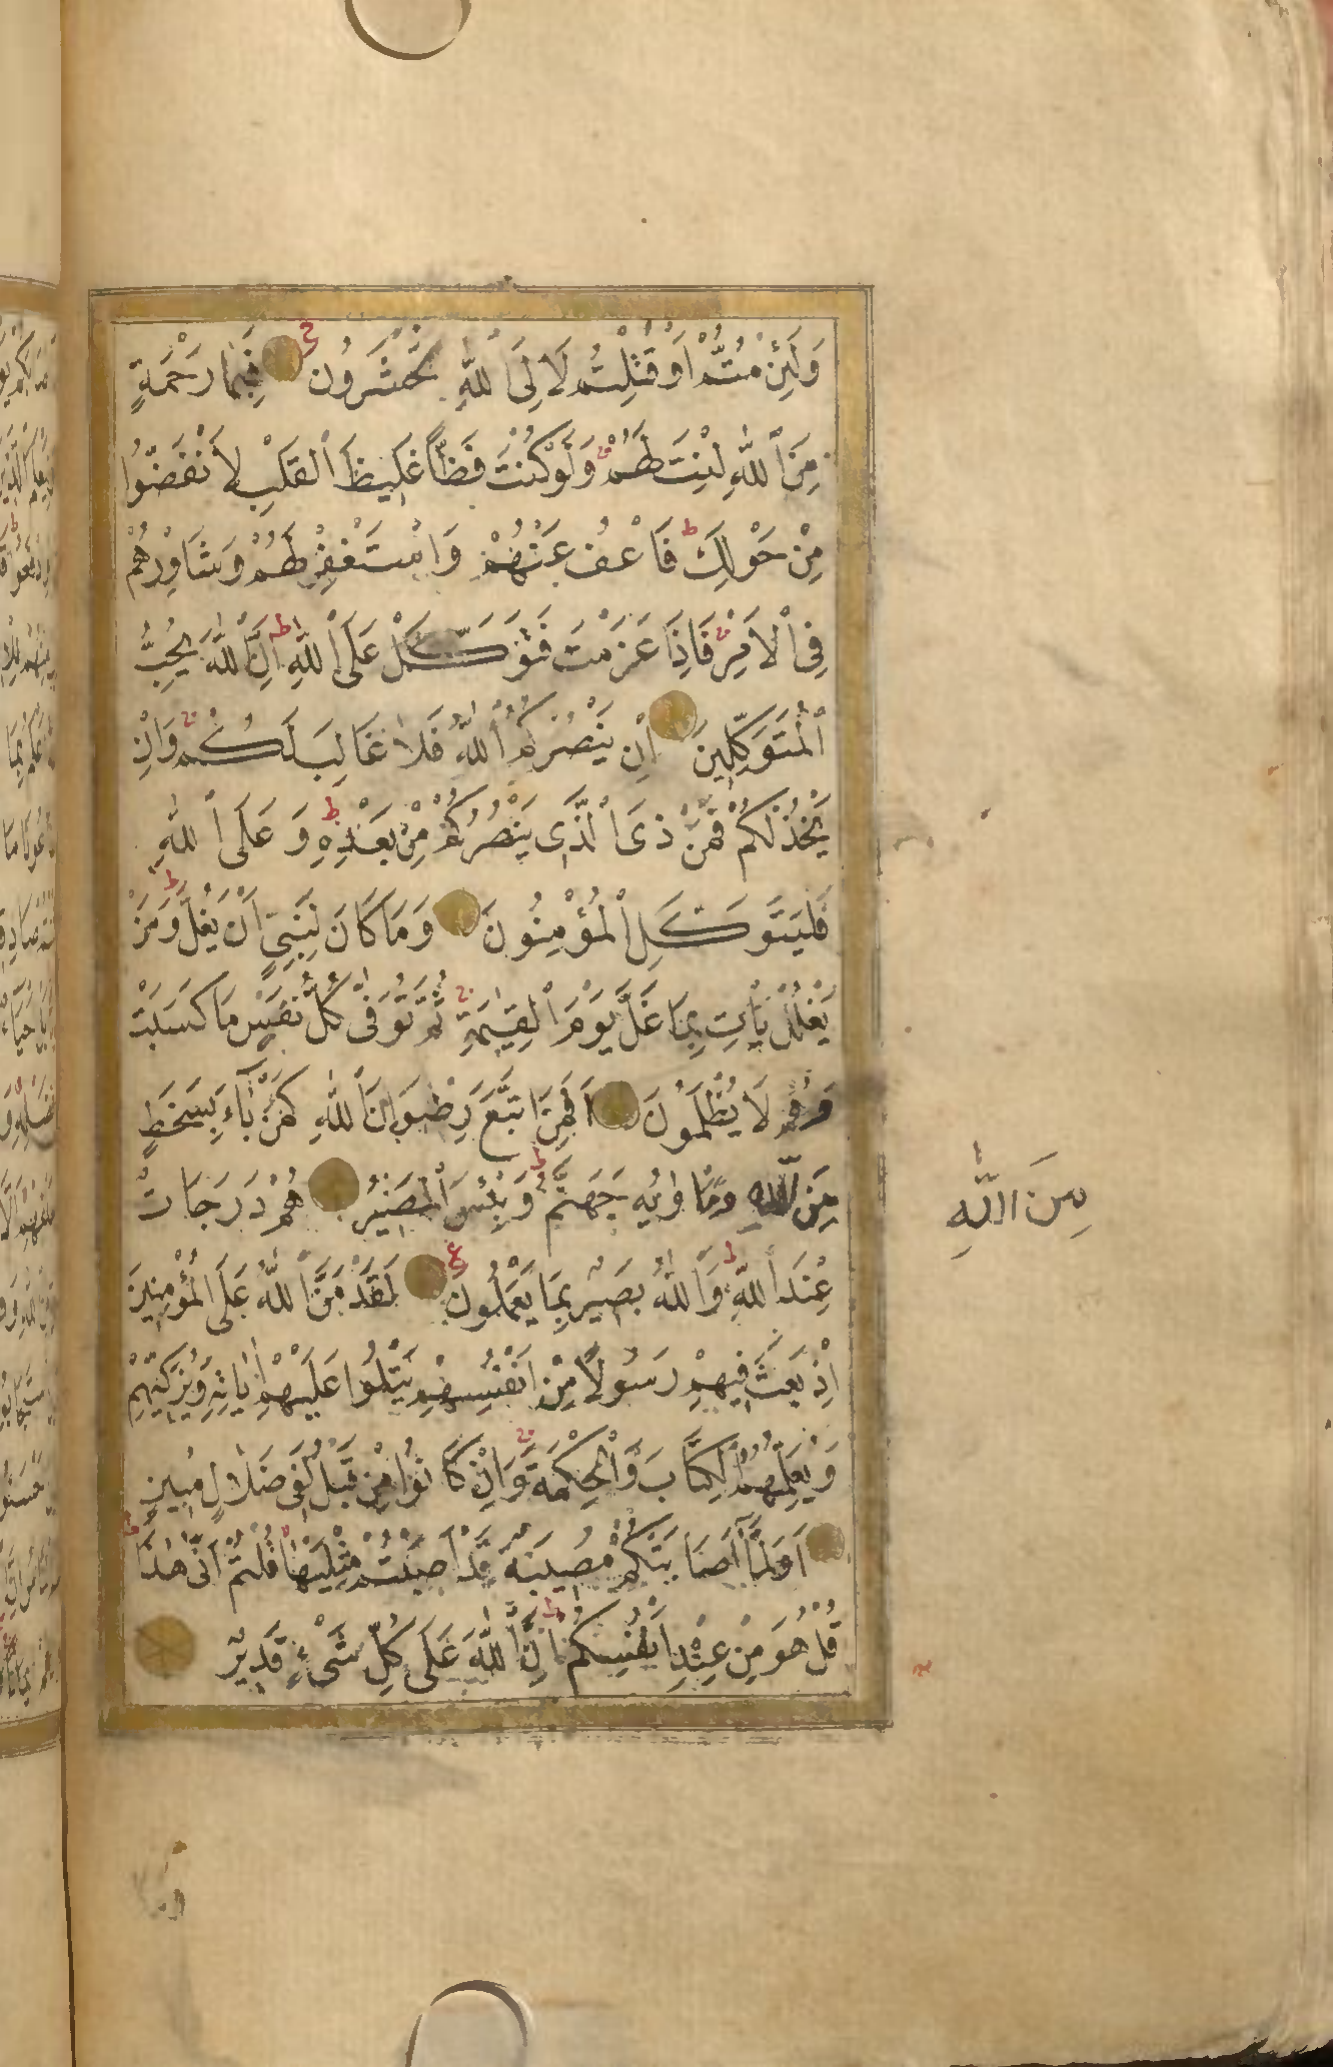 وَلَئِنْ مُتُّمْ اَوْ قُتِلْتُمْ لَا لِىَ اللّٰهِ تُحْشَرُونَ فَبِمَا رَحْمَةٍ
مِنَ اللّٰهِ لِنْتَ لَهُمْ وَلَوْ كُنْتَ فَظًّا غَلِيظَ الْقَلْبِ لَانْفَضُّوا
مِنْ حَوْلِكَ فَاعْفُ عَنْهُمْ وَاسْتَغْفِرْ لَهُمْ وَشَاوِرْهُمْ
فِى الْاَمْرِ فَاِذَا عَزَمْتَ فَتَوَكَّلْ عَلَى اللّٰهِ اِنَّ اللّٰهَ يُحِبُّ
الْمُتَوَكِّلِينَ اِنْ يَنْصُرْكُمُ اللّٰهُ فَلَا غَالِبَ لَكُمْ وَاِنْ
يَخْذُلْكُمْ فَمَنْ ذَى الَّذِى يَنْصُرُكُمْ مِنْ بَعْدِهِ وَعَلَى اللّٰهِ
فَلْيَتَوَكَّلِ الْمُؤْمِنُونَ وَمَا كَانَ لِنَبِىٍّ اَنْ يَغُلَّ وَمَنْ
يَغْلُلْ يَأْتِ بِمَا غَلَّ يَوْمَ الْقِيٰمَةِ ثُمَّ تُوَفّٰى كُلُّ نَفْسٍ مَا كَسَبَتْ
وَهُمْ لَا يُظْلَمُونَ اَفَمَنِ اتَّبَعَ رِضْوَانَ اللّٰهِ كَمَنْ بَآءَ بِسَخَطٍ
مِنَ اللّٰهِ وَمَاْوٰيهُ جَهَنَّمُ وَبِئْسَ الْمَصِيرُ هُمْ دَرَجَاتٌ
مِنَ اللّٰهِ
عِنْدَ اللّٰهِ وَاللّٰهُ بَصِيرٌ بِمَا يَعْمَلُونَ لَقَدْ مَنَّ اللّٰهُ عَلَى الْمُؤْمِنِينَ
اِذْ بَعَثَ فِيهِمْ رَسُولًا مِنْ اَنْفُسِهِمْ يَتْلُوا عَلَيْهِمْ اٰيَاتِهِ وَيُزَكِّيهِمْ
وَيُعَلِّمُهُمُ الْكِتَابَ وَالْحِكْمَةَ وَاِنْ كَانُوا مِنْ قَبْلُ لَفِى ضَلَالٍ مُبِينٍ
اَوَلَمَّا اَصَابَتْكُمْ مُصِيبَةٌ قَدْ اَصَبْتُمْ مِثْلَيْهَا قُلْتُمْ اَنّٰى هٰذَا
قُلْ هُوَ مِنْ عِنْدِ اَنْفُسِكُمْ اِنَّ اللّٰهَ عَلَى كُلِّ شَىْءٍ قَدِيرٌ